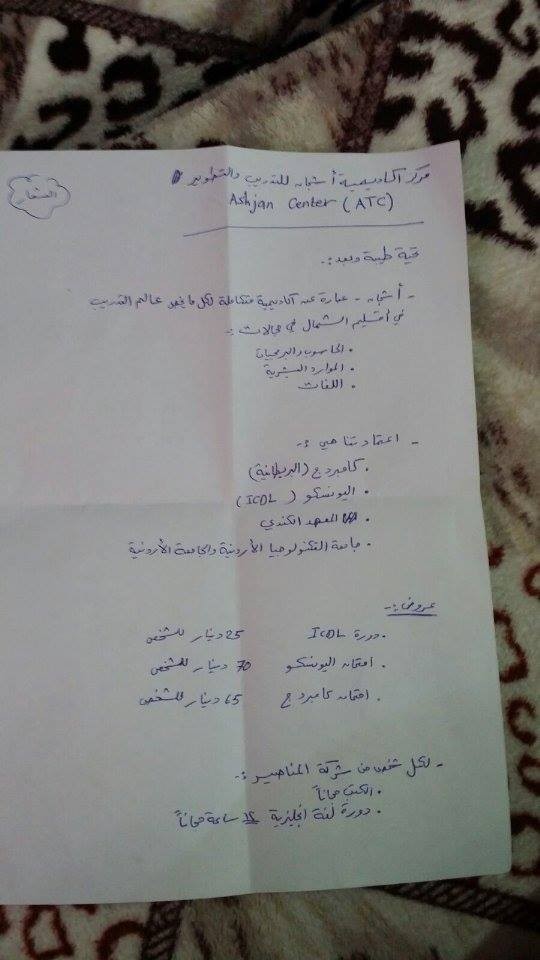 مركز أكاديمية أشجان للتدريب والتطوير
الشعار
Ashjan Center (ATC)
تحية طيبة وبعد :-
- أشجان - عبارة عن أكاديمية متكاملة لكل ما يخص عالم التدريب
في أقليم الشمال في مجالات :-
• الحاسوب والبرمجيات
• الموارد البشرية
• اللغات
- اعتماداتنا هي :-
• كامبردج (البريطانية)
• اليونسكو (ICDL)
• المعهد الكندي
• جامعة التكنولوجيا الأردنية والجامعة الأردنية
عروض :-
• دورة ICDL 25 دينار للشخص
• امتحان اليونسكو 70 دينار للشخص
• امتحان كامبردج 65 دينار للشخص
- لكل شخص من شركة المناصير :-
• الكتب مجاناً
• دورة لغة انجليزية ساعة مجاناً